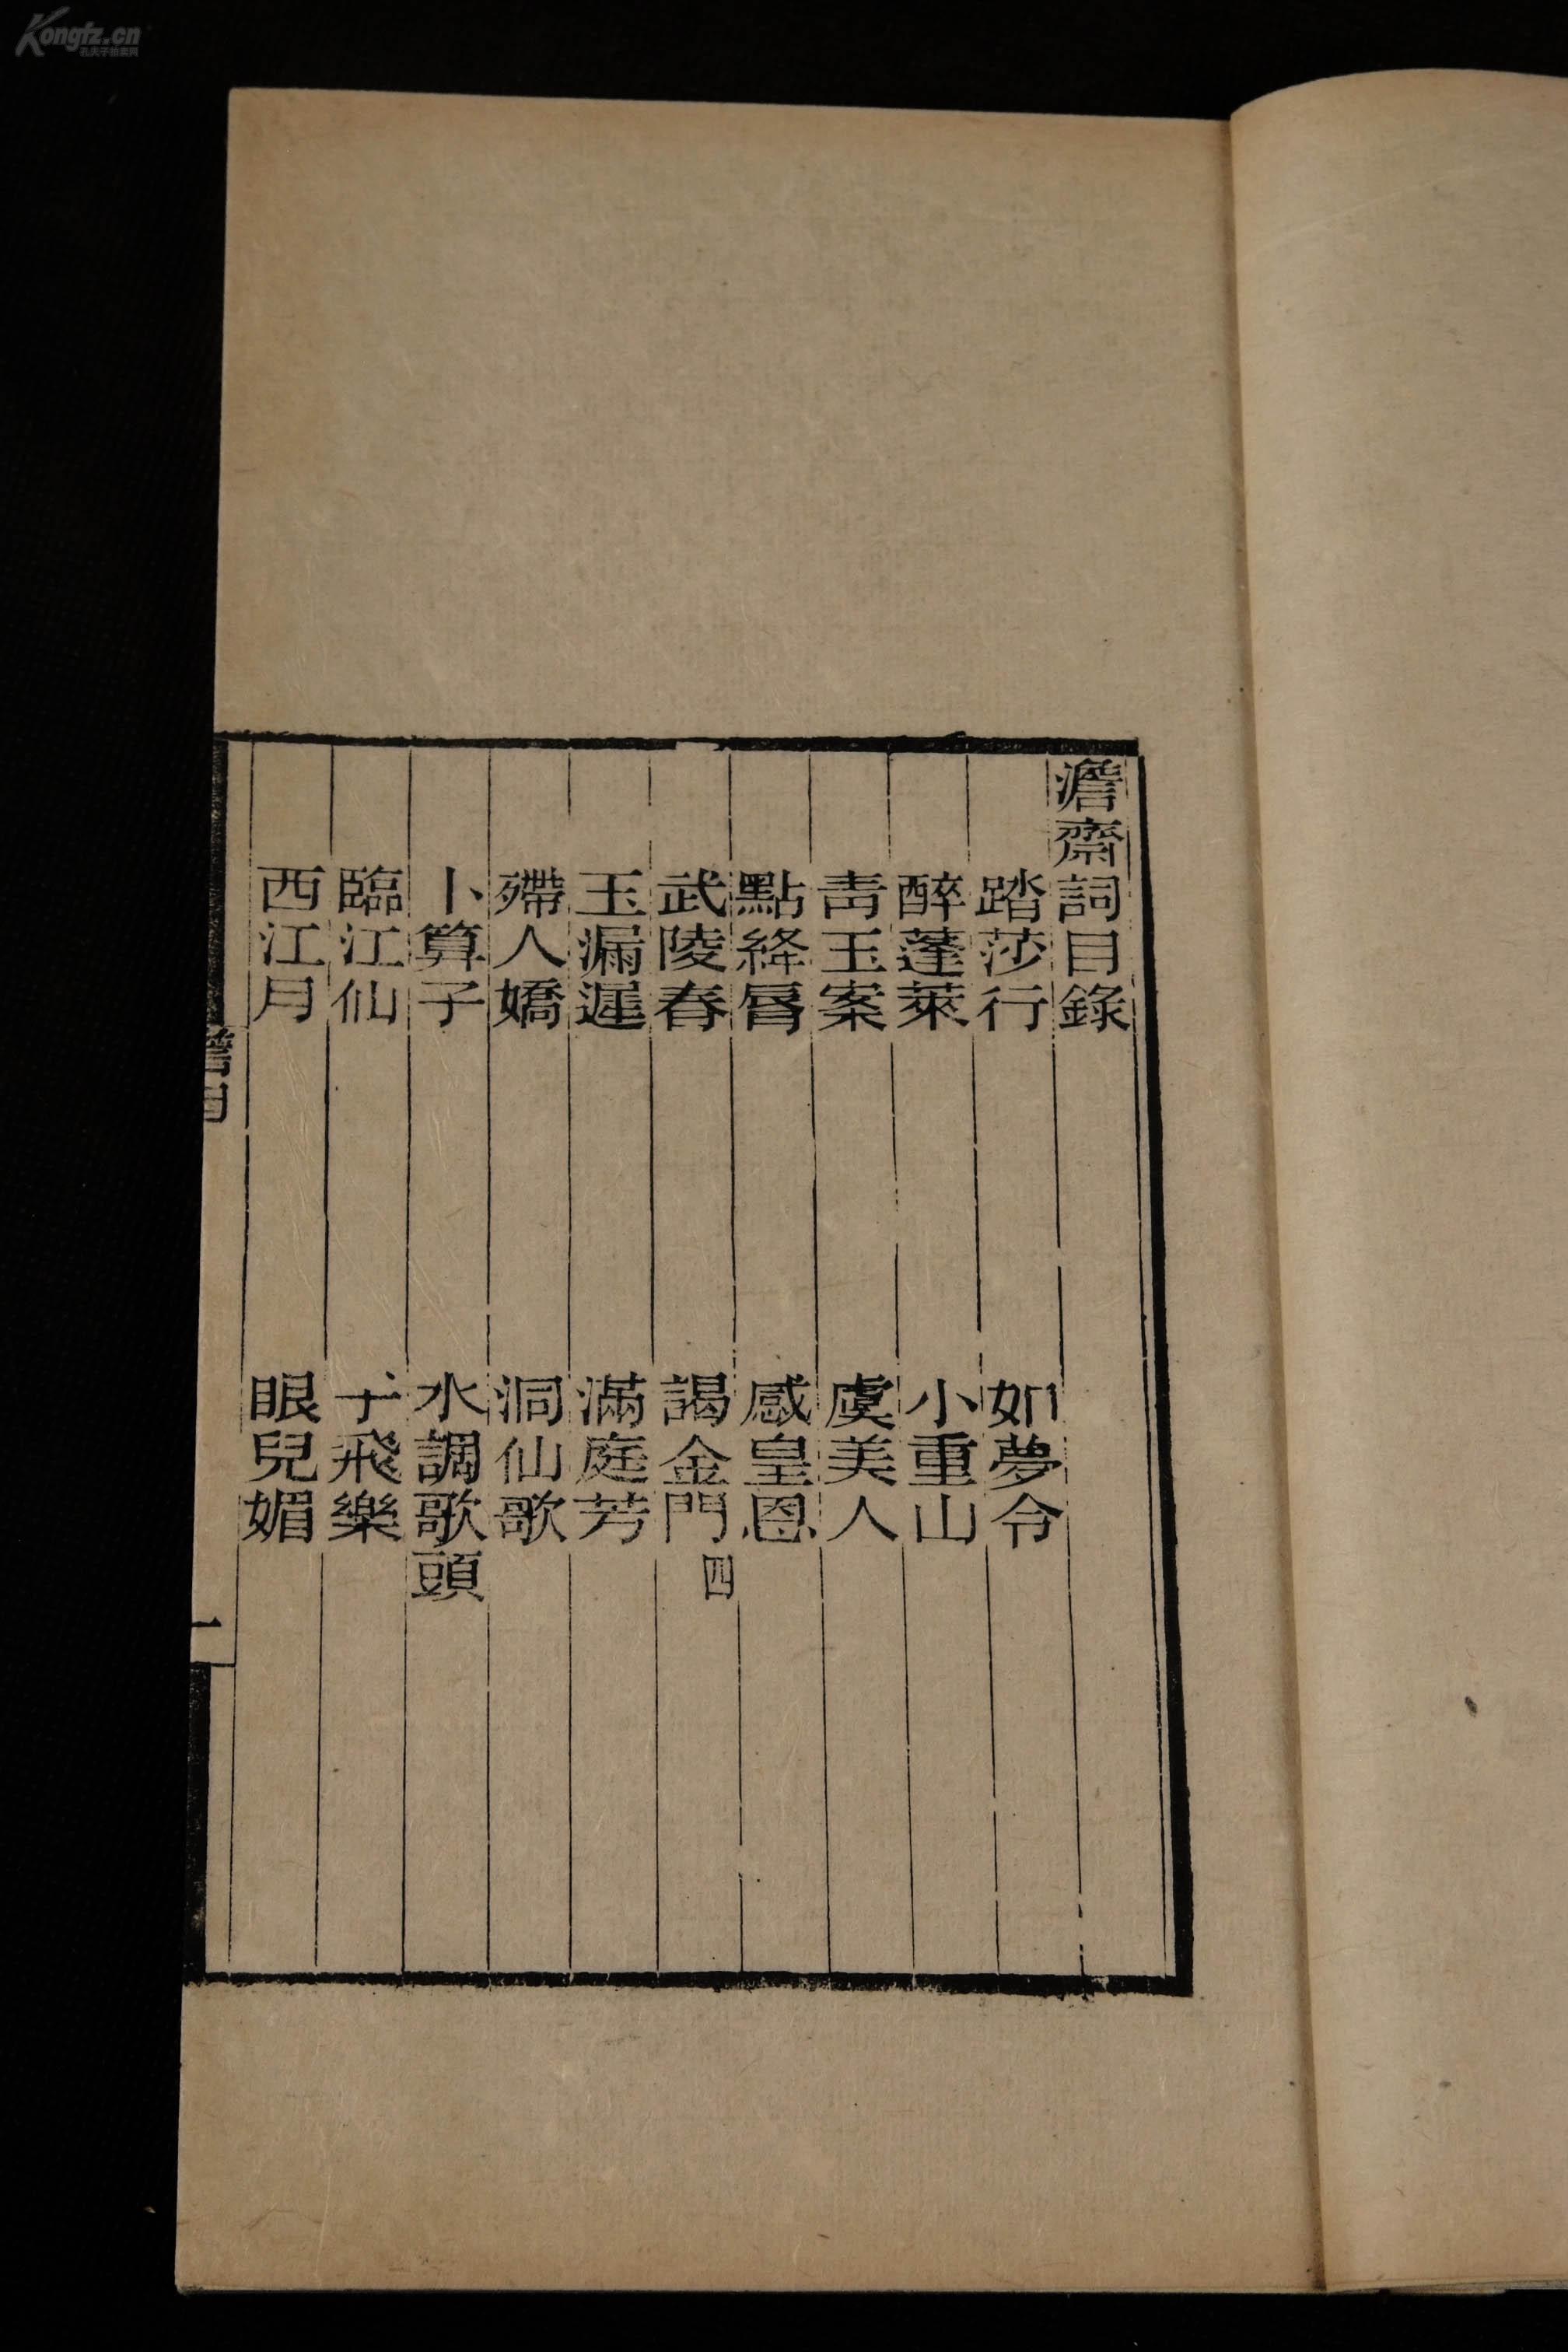 澹齋詞目錄
踏莎行 如夢令
醉蓬萊 小重山
靑玉案 虞美人
點絳脣 感皇恩
武陵春 謁金門四
玉漏遲 滿庭芳
殢人嬌 洞仙歌
卜算子 水調歌頭
臨江仙 于飛樂
西江月 眼兒媚
澹目
一
Kongfz.cn